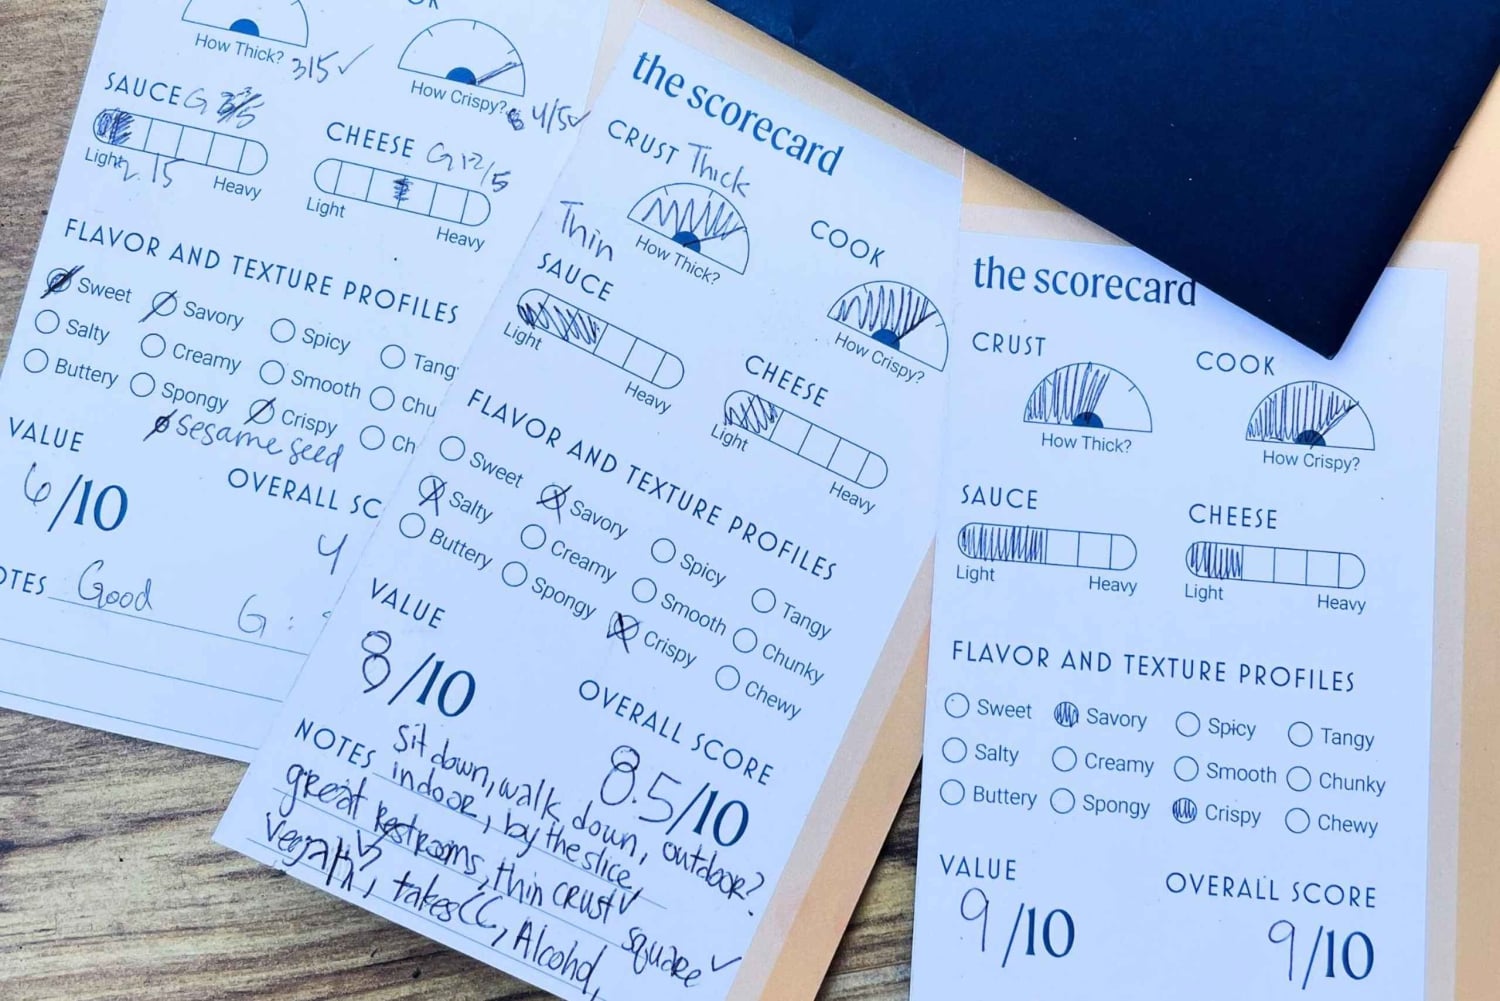 How Thick? 3/5 ✓
How Crispy? 4/5 ✓
SAUCE G
Light Heavy
2.15
CHEESE G 2/5
Light Heavy
FLAVOR AND TEXTURE PROFILES
Sweet Savory Spicy Tang
Salty Creamy Smooth Chu
Buttery Spongy Crispy Ch
Sesame seed
VALUE
6/10
OVERALL SC
4
OTES Good G:
the scorecard
CRUST Thick
Thin
How Thick?
COOK
How Crispy?
SAUCE
Light Heavy
CHEESE
Light Heavy
FLAVOR AND TEXTURE PROFILES
Sweet Savory Spicy Tangy
Salty Creamy Smooth Chunky
Buttery Spongy Crispy Chewy
VALUE
8/10
OVERALL SCORE
8.5/10
NOTES Sit down, walk down, outdoor?
indoor, by the slice,
great restrooms, thin crust ✓ square ✓
Vegan, takes CC, Alcohol,
the scorecard
CRUST
How Thick?
COOK
How Crispy?
SAUCE
Light Heavy
CHEESE
Light Heavy
FLAVOR AND TEXTURE PROFILES
Sweet Savory Spicy Tangy
Salty Creamy Smooth Chunky
Buttery Spongy Crispy Chewy
VALUE
9/10
OVERALL SCORE
9/10